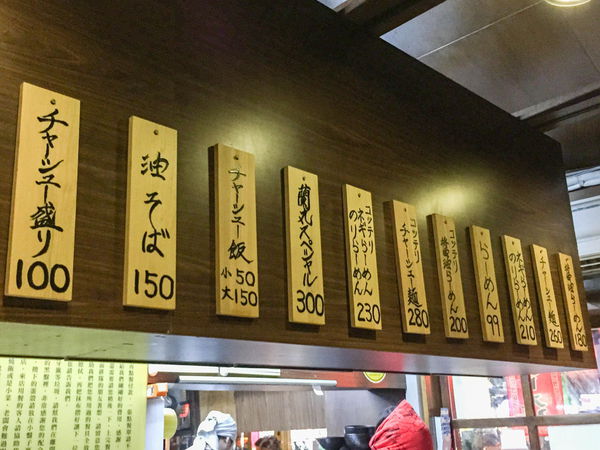 チャーシュー盛り
100
油そば
150
チャーシュー飯
小 50
大 150
蘭丸スペシャル
300
コッテリ
ネギらーめん
のりらーめん
230
コッテリ
チャーシュー麺
280
コッテリ
醤油らーめん
200
らーめん
99
ネギらーめん
のりらーめん
210
チャーシュー麺
260
醤油らーめん
180